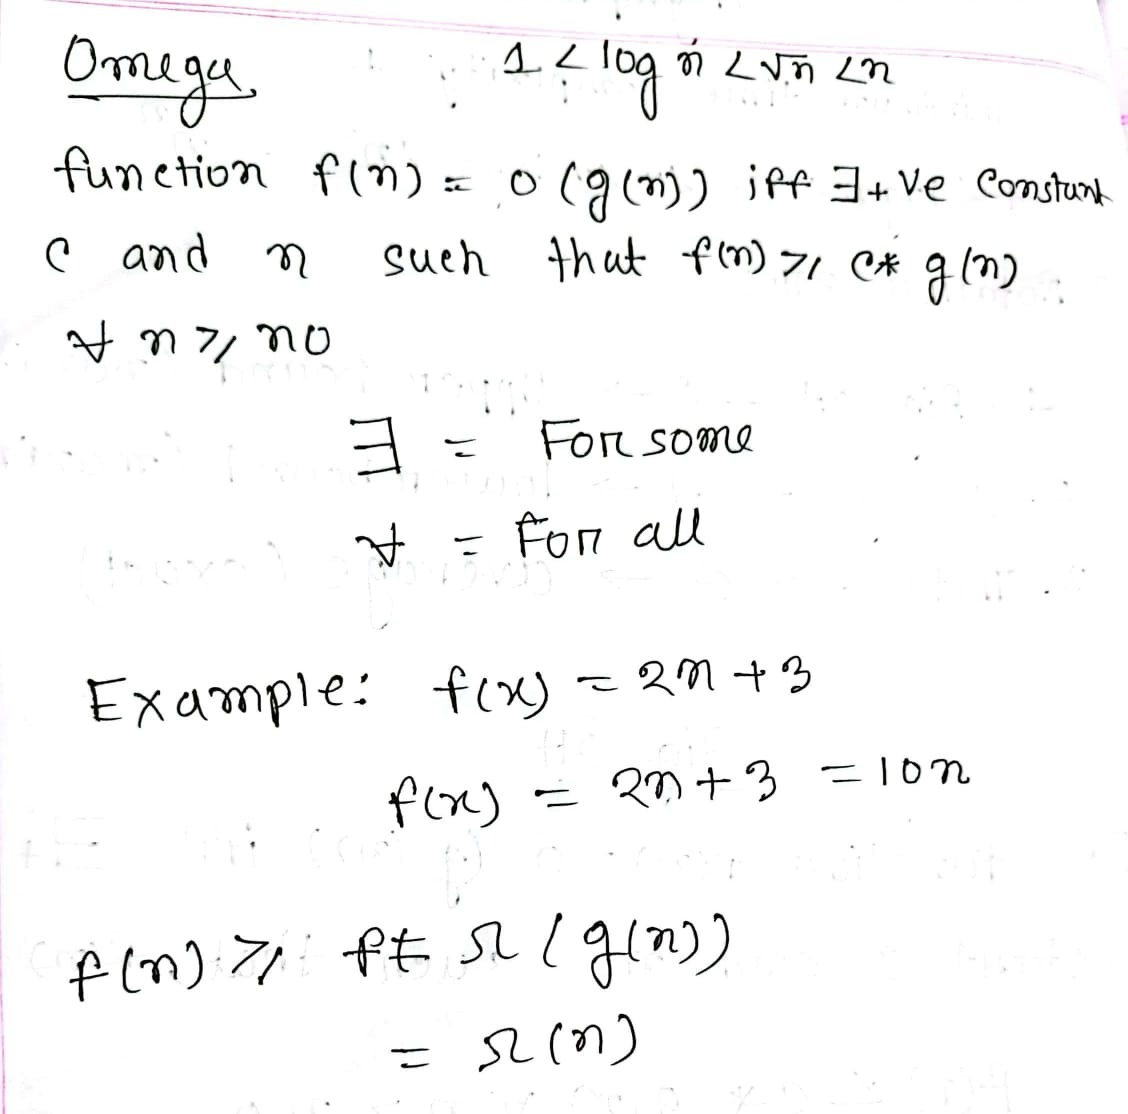 Omega 1 < log n < √n < n
function f(n) = 0 (g(n)) iff ∃ +ve Constant
c and n such that f(n) ≥ c* g(n)
∀ n ≥ no
∃ = For some
∀ = For all
Example: f(x) = 2n + 3
f(x) = 2n + 3 = 10n
f(n) ≥ Ω (g(n))
= Ω (n)